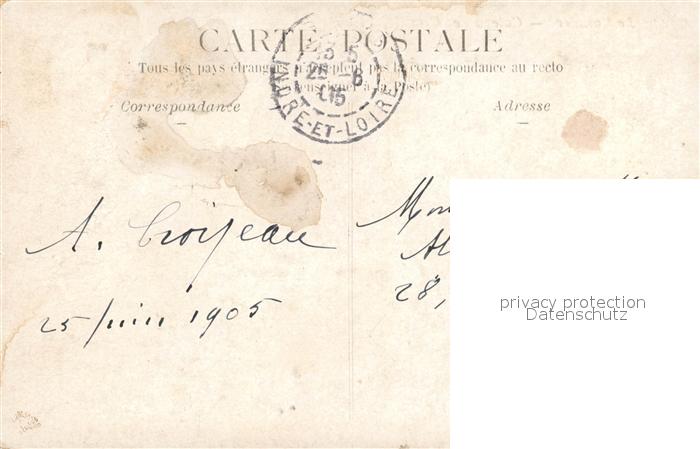 CARTE POSTALE
Tous les pays étrangers n'acceptent pas la correspondance au recto
(Se renseigner à la Poste)
Correspondance
Adresse
25 -6
05
INDRE-ET-LOIRE
A. Croizeau
25 juin 1905
28,
privacy protection
Datenschutz